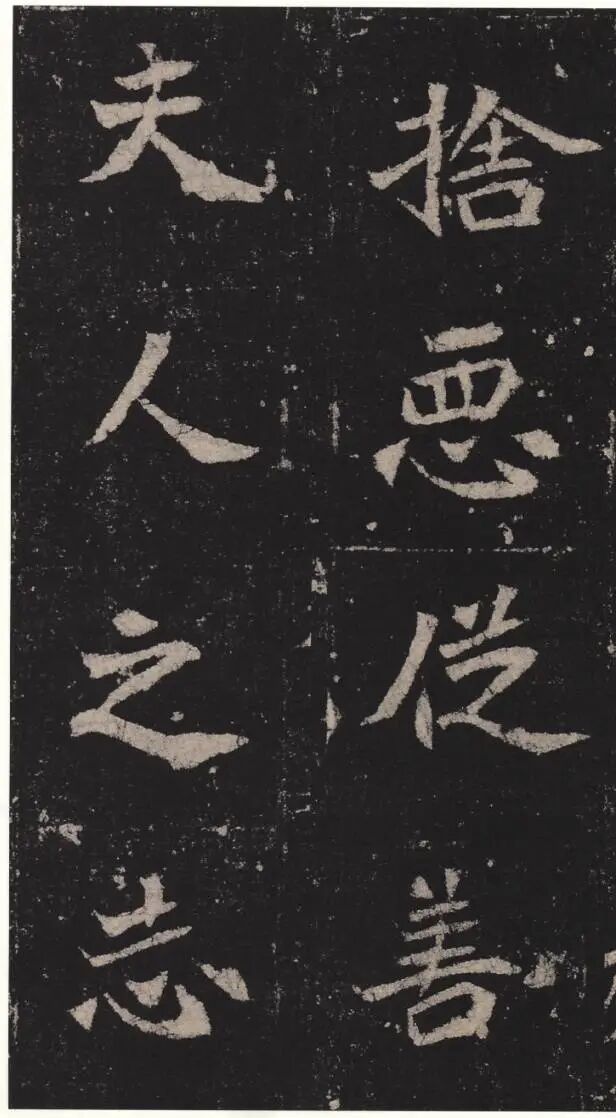 捨惡從善
夫人之志